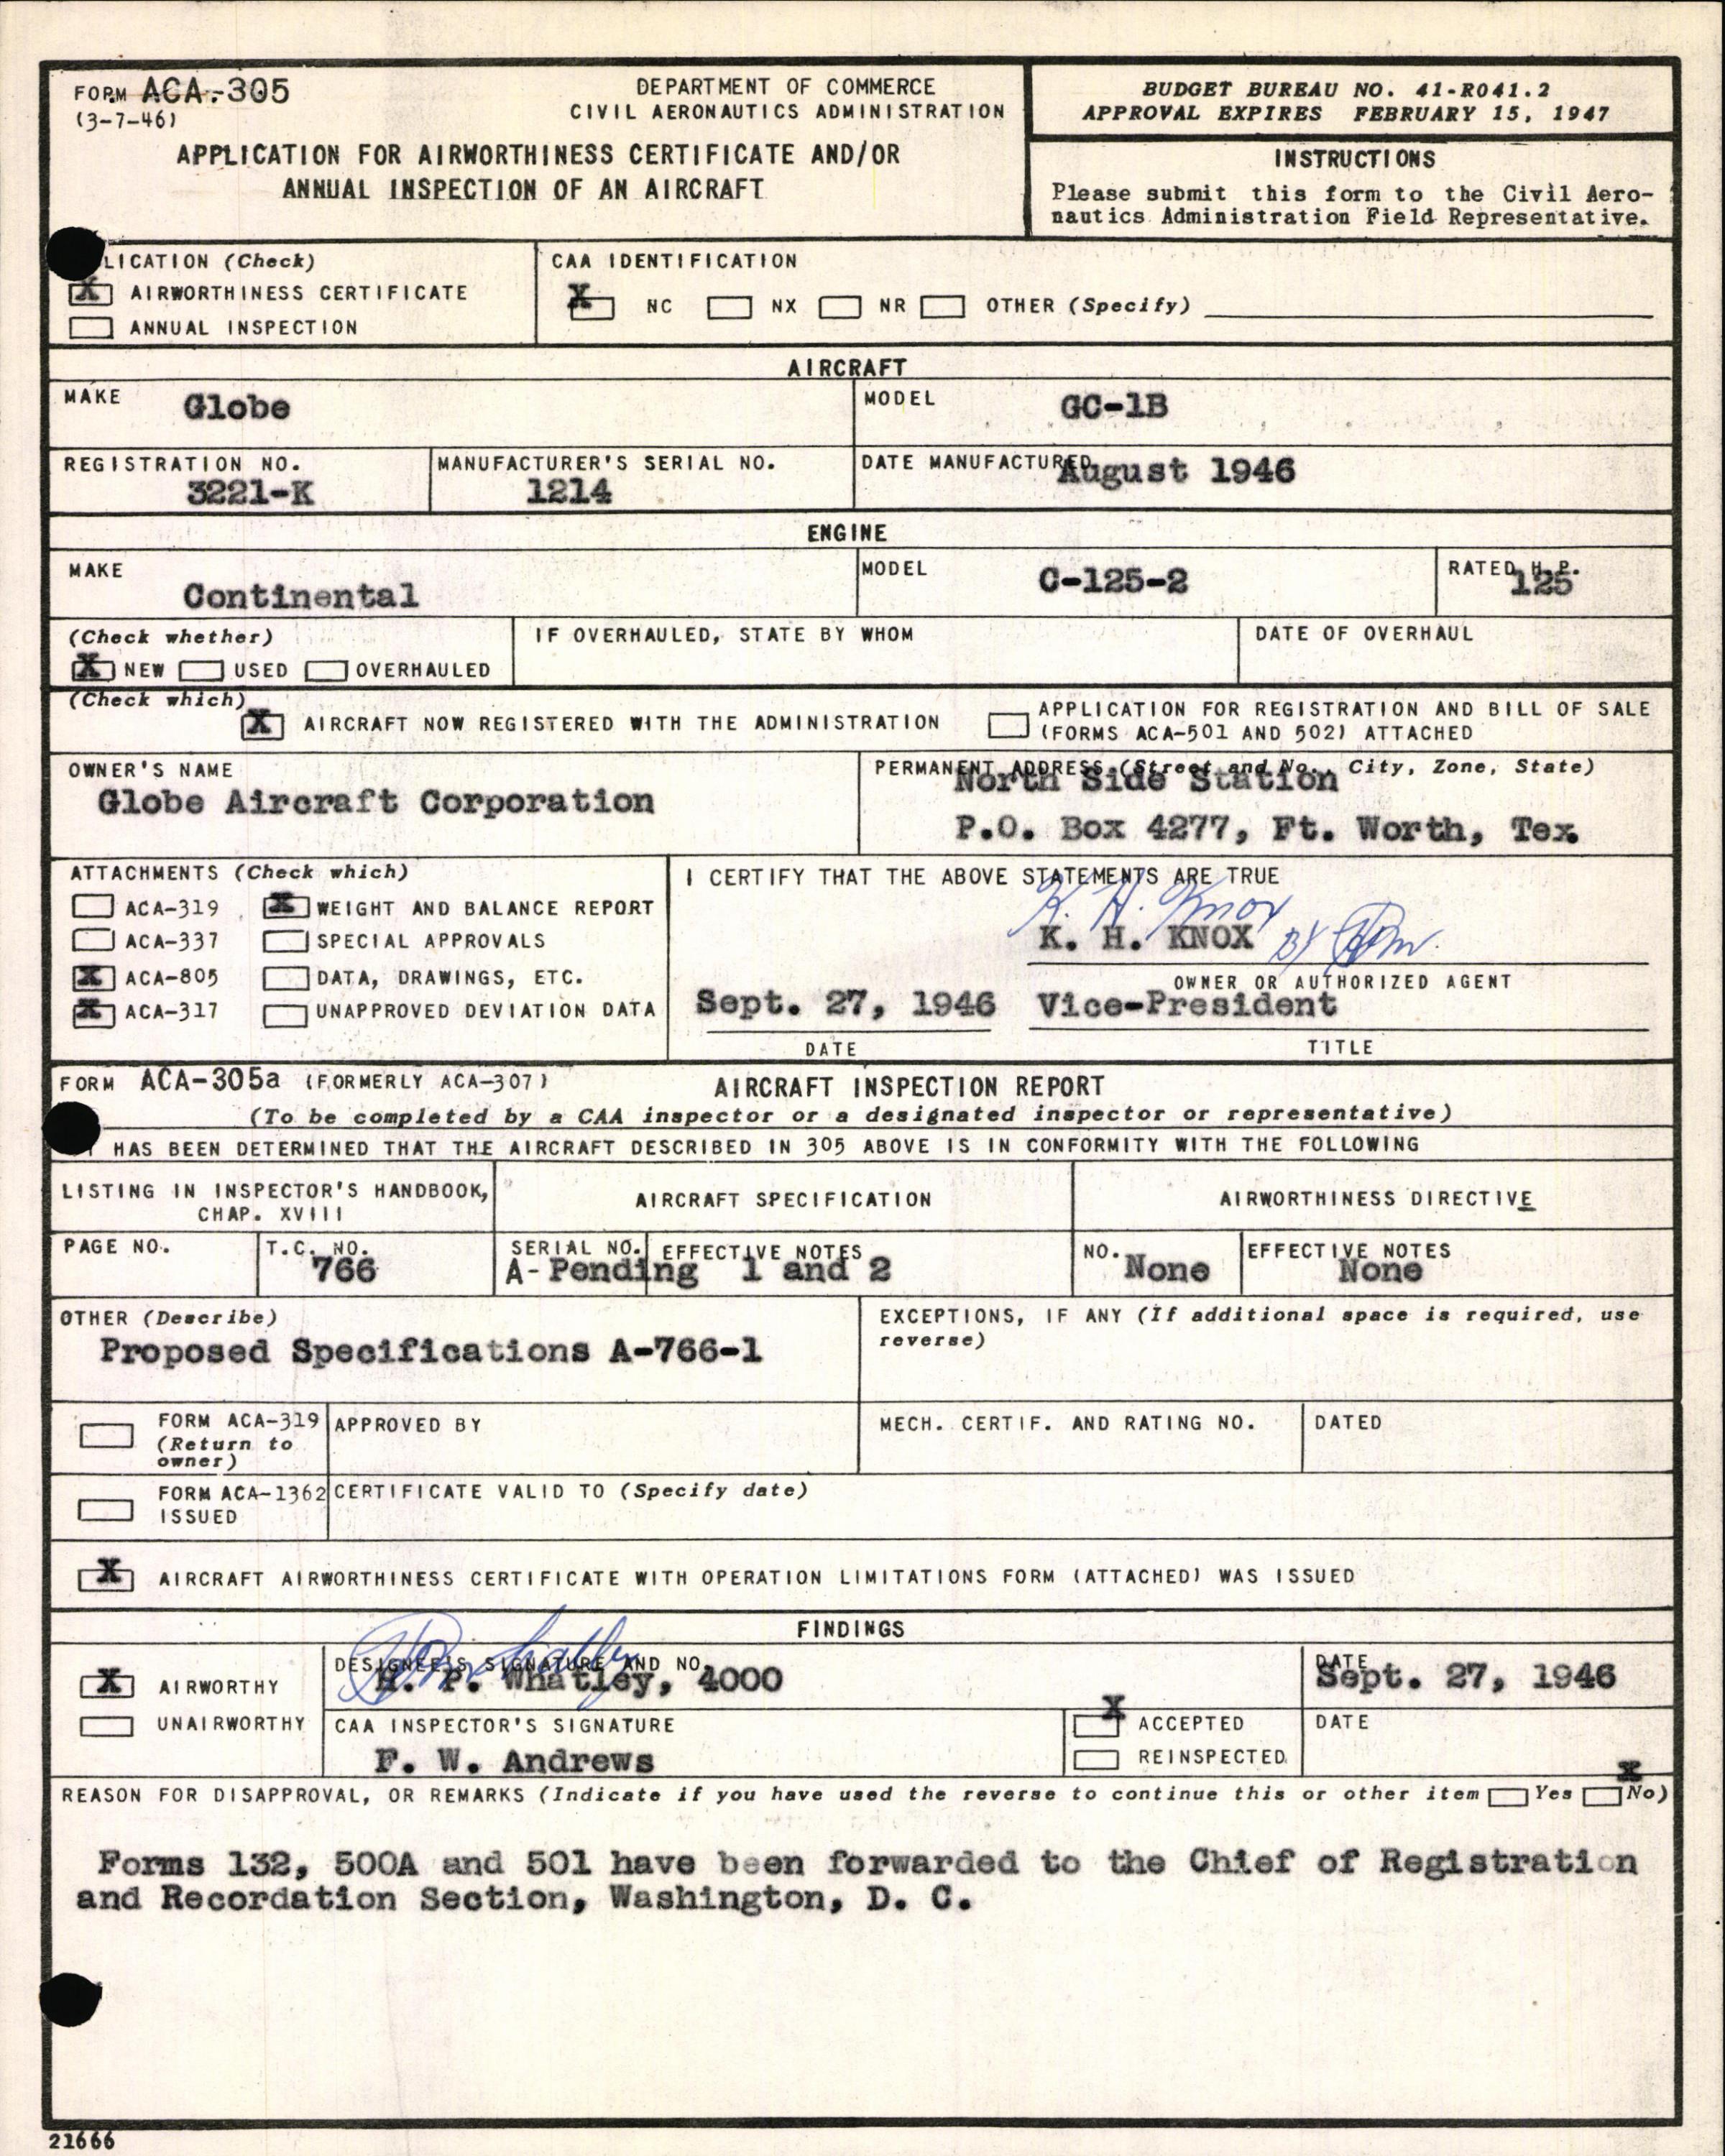 FORM ACA-305
(3-7-46)
DEPARTMENT OF COMMERCE
CIVIL AERONAUTICS ADMINISTRATION
APPLICATION FOR AIRWORTHINESS CERTIFICATE AND/OR
ANNUAL INSPECTION OF AN AIRCRAFT
BUDGET BUREAU NO. 41-R041.2
APPROVAL EXPIRES FEBRUARY 15, 1947
INSTRUCTIONS
Please submit this form to the Civil Aero-
nautics Administration Field Representative.
LICATION (Check)
X AIRWORTHINESS CERTIFICATE
ANNUAL INSPECTION
CAA IDENTIFICATION
X NC NX NR OTHER (Specify)
AIRCRAFT
MAKE Globe
MODEL GC-1B
REGISTRATION NO.
3221-K
MANUFACTURER'S SERIAL NO.
1214
DATE MANUFACTURED August 1946
ENGINE
MAKE
Continental
MODEL C-125-2
RATED H.P.
125
(Check whether)
X NEW USED OVERHAULED
IF OVERHAULED, STATE BY WHOM
DATE OF OVERHAUL
(Check which)
X AIRCRAFT NOW REGISTERED WITH THE ADMINISTRATION
APPLICATION FOR REGISTRATION AND BILL OF SALE
(FORMS ACA-501 AND 502) ATTACHED
OWNER'S NAME
Globe Aircraft Corporation
PERMANENT ADDRESS (Street and No., City, Zone, State)
North Side Station
P.O. Box 4277, Ft. Worth, Tex.
ATTACHMENTS (Check which)
ACA-319 X WEIGHT AND BALANCE REPORT
ACA-337 SPECIAL APPROVALS
X ACA-805 DATA, DRAWINGS, ETC.
X ACA-317 UNAPPROVED DEVIATION DATA
I CERTIFY THAT THE ABOVE STATEMENTS ARE TRUE
K. H. Knox
K. H. KNOX BY
OWNER OR AUTHORIZED AGENT
Sept. 27, 1946 Vice-President
DATE TITLE
FORM ACA-305a (FORMERLY ACA-307) AIRCRAFT INSPECTION REPORT
(To be completed by a CAA inspector or a designated inspector or representative)
HAS BEEN DETERMINED THAT THE AIRCRAFT DESCRIBED IN 305 ABOVE IS IN CONFORMITY WITH THE FOLLOWING
LISTING IN INSPECTOR'S HANDBOOK,
CHAP. XVIII
AIRCRAFT SPECIFICATION
AIRWORTHINESS DIRECTIVE
PAGE NO.
T.C. NO.
766
SERIAL NO.
A-Pending
EFFECTIVE NOTES
1 and 2
NO. None
EFFECTIVE NOTES
None
OTHER (Describe)
Proposed Specifications A-766-1
EXCEPTIONS, IF ANY (If additional space is required, use
reverse)
FORM ACA-319
(Return to
owner)
APPROVED BY
MECH. CERTIF. AND RATING NO.
DATED
FORM ACA-1362
ISSUED
CERTIFICATE VALID TO (Specify date)
X AIRCRAFT AIRWORTHINESS CERTIFICATE WITH OPERATION LIMITATIONS FORM (ATTACHED) WAS ISSUED
FINDINGS
X AIRWORTHY
UNAIRWORTHY
DESIGNEE'S SIGNATURE AND NO.
H. P. Whatley, 4000
DATE
Sept. 27, 1946
CAA INSPECTOR'S SIGNATURE
F. W. Andrews
X ACCEPTED
REINSPECTED
DATE
REASON FOR DISAPPROVAL, OR REMARKS (Indicate if you have used the reverse to continue this or other item Yes X No)
Forms 132, 500A and 501 have been forwarded to the Chief of Registration
and Recordation Section, Washington, D. C.
21666